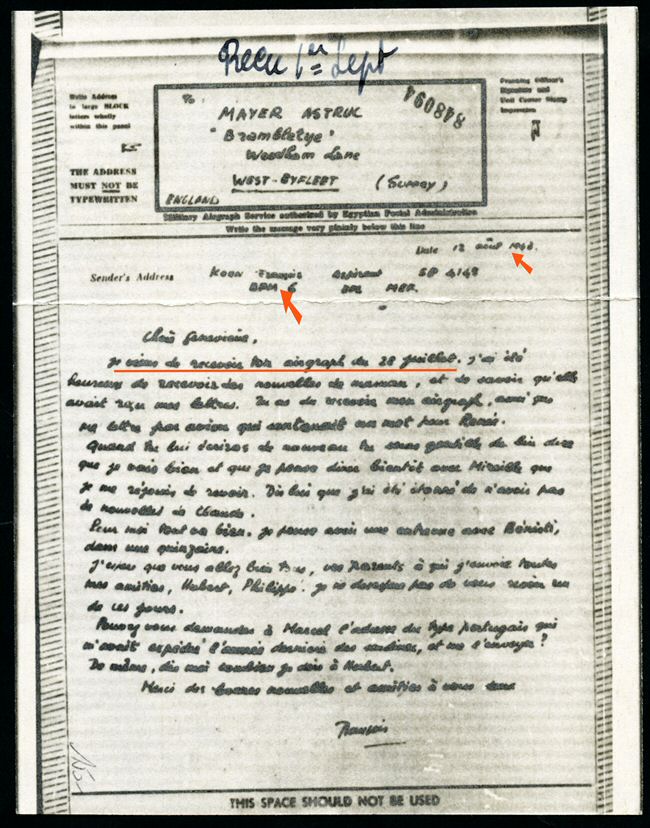 Reçu 1er Sept
Write Address
in large BLOCK
letters wholly
within this panel
THE ADDRESS
MUST NOT BE
TYPEWRITTEN
To
MAYER ASTRUC
"Brambletye"
Woodham Lane
WEST-BYFLEET (SURREY)
ENGLAND
848094
Military Airgraph Service authorized by Egyptian Postal Administration
Write the message very plainly below this line
Date 12 août
Sender's Address
François Aspirant SP 4148
BPM 6
Chère Geneviève,
Je viens de recevoir ton airgraph du 28 juillet. J'ai été
heureux de recevoir des nouvelles de maman, et de savoir qu'elle
avait reçu mes lettres. Tu as dû recevoir mon airgraph, ainsi que
ma lettre par avion qui contenait un mot pour Renée.
Quand tu lui écriras de nouveau tu seras gentille de lui dire
que je vais bien et que je pense dîner bientôt avec Mireille que
je me réjouis de revoir. Dis lui que j'ai été étonné de n'avoir pas
de nouvelles de Claude.
Pour moi tout va bien. Je pense avoir une entrevue avec
dans une quinzaine.
J'espère que vous allez bien tous, vos parents à qui j'envoie toutes
mes amitiés, Hubert, Philippe. Je ne désespère pas de vous revoir un
de ces jours.
Pouvez vous demander à Marcel l'adresse du type portugais qui
m'avait expédié l'année dernière des sardines, et me l'envoyer?
De même, dis moi combien je dois à Hubert.
Merci des bonnes nouvelles et amitiés à vous tous
François
THIS SPACE SHOULD NOT BE USED